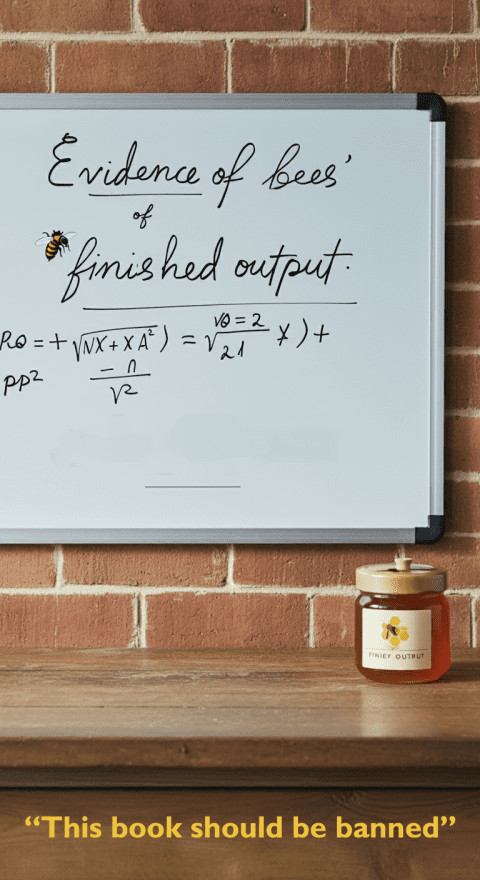 Evidence of bees'
of
finished output.
RQ = + √NX + XA² ) = √VQ = 2 / 21 X ) +
PP² - n / √2
FINIEY OUTBUT
“This book should be banned”